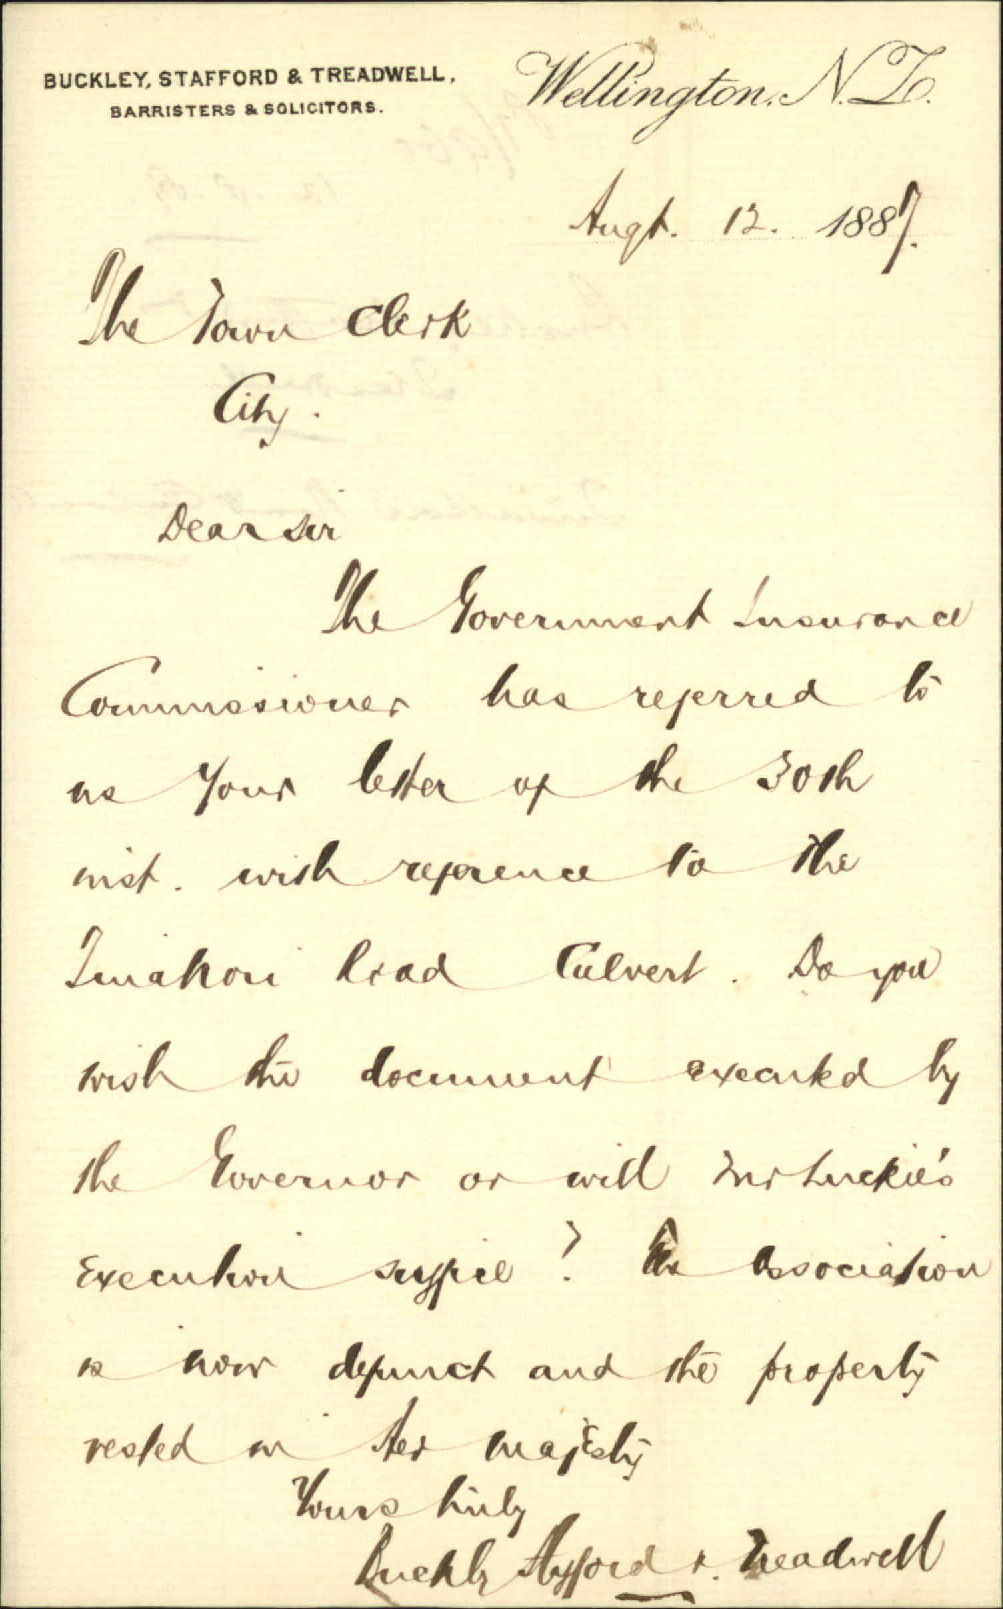 BUCKLEY, STAFFORD & TREADWELL,
BARRISTERS & SOLICITORS.
Wellington, N.Z.
Augt. 12. 1887.
The Town Clerk
City.
Dear Sir
The Government Insurance
Commissioner has referred to
us your letter of the 30th
inst. with reference to the
Tinakori Road Culvert. Do you
wish the document executed by
the Governor or will Mr Luckie's
execution suffice? The Association
is now defunct and the property
vested in Her Majesty
Yours truly
Buckley Stafford & Treadwell